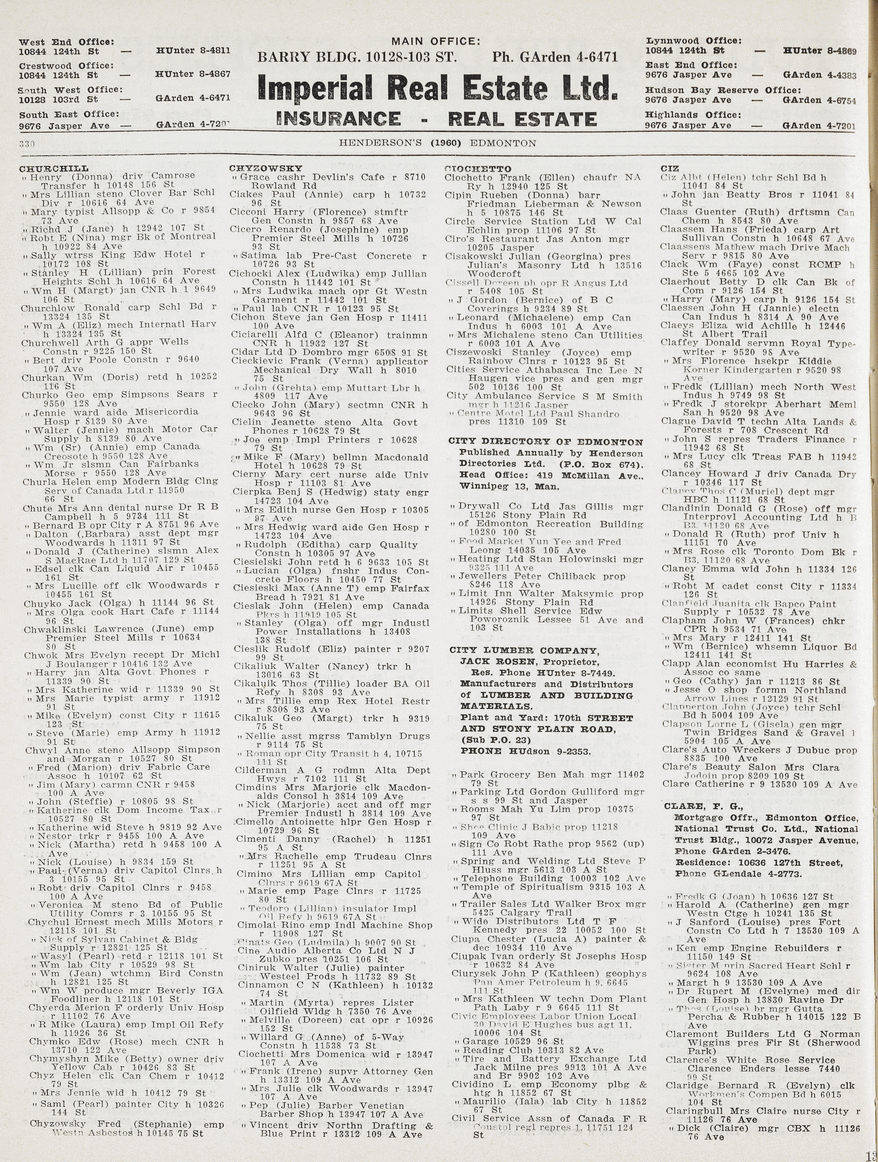 West End Office:
10844 124th St — HUnter 8-4811
Crestwood Office:
10844 124th St — HUnter 8-4867
South West Office:
10128 103rd St — GArden 4-6471
South East Office:
9676 Jasper Ave — GArden 4-720
MAIN OFFICE:
BARRY BLDG. 10128-103 ST. Ph. GArden 4-6471
Imperial Real Estate Ltd.
INSURANCE - REAL ESTATE
Lynnwood Office:
10844 124th St — HUnter 8-4869
East End Office:
9676 Jasper Ave — GArden 4-4383
Hudson Bay Reserve Office:
9676 Jasper Ave — GArden 4-6754
Highlands Office:
9676 Jasper Ave — GArden 4-7201
330
HENDERSON'S (1960) EDMONTON
CHURCHILL
" Henry (Donna) driv Camrose
Transfer h 10148 156 St
" Mrs Lillian steno Clover Bar Schl
Div r 10616 64 Ave
" Mary typist Allsopp & Co r 9854
73 Ave
" Richd J (Jane) h 12942 107 St
" Robt E (Nina) mgr Bk of Montreal
h 10922 84 Ave
" Sally wtrss King Edw Hotel r
10172 108 St
" Stanley H (Lillian) prin Forest
Heights Schl h 10616 64 Ave
" Wm H (Margt) jan CNR h 1 9649
106 St
Churchlow Ronald carp Schl Bd r
13324 135 St
" Wm A (Eliz) mech Internatl Harv
h 13324 135 St
Churchwell Arth G appr Wells
Constn r 9225 150 St
" Bert driv Poole Constn r 9640
107 Ave
Churkan Wm (Doris) retd h 10252
116 St
Churko Geo emp Simpsons Sears r
9550 128 Ave
" Jennie ward aide Misericordia
Hosp r 8139 80 Ave
" Walter (Jennie) mach Motor Car
Supply h 8139 80 Ave
" Wm (Sr) (Annie) emp Canada
Creosote h 9550 128 Ave
" Wm Jr slsmn Can Fairbanks
Morse r 9550 128 Ave
Churla Helen emp Modern Bldg Clng
Serv of Canada Ltd r 11950
66 St
Chute Mrs Ann dental nurse Dr R B
Campbell h 5 9734 111 St
" Bernard B opr City r A 8751 96 Ave
" Dalton (Barbara) asst dept mgr
Woodwards h 11311 97 St
" Donald J (Catherine) slsmn Alex
S MacRae Ltd h 11707 129 St
" Edsel clk Can Liquid Air r 10455
161 St
" Mrs Lucille off clk Woodwards r
10455 161 St
Chuyko Jack (Olga) h 11144 96 St
" Mrs Olga cook Hart Cafe r 11144
96 St
Chwaklinski Lawrence (June) emp
Premier Steel Mills r 10634
80 St
Chwok Mrs Evelyn recept Dr Michl
J Boulanger r 10416 132 Ave
" Harry jan Alta Govt Phones r
11339 90 St
" Mrs Katherine wid r 11339 90 St
" Mrs Marie typist army r 11912
91 St
" Mike (Evelyn) const City r 11615
123 St
" Steve (Marie) emp Army h 11912
91 St
Chwyl Anne steno Allsopp Simpson
and Morgan r 10527 80 St
" Fred (Marion) driv Fabric Care
Assoc h 10107 62 St
" Jim (Mary) carmn CNR r 9458
100 A Ave
" John (Steffie) r 10805 98 St
" Katherine clk Dom Income Tax r
10527 80 St
" Katherine wid Steve h 9819 92 Ave
" Nestor trkr r 9458 100 A Ave
" Nick (Martha) retd h 9458 100 A
Ave
" Nick (Louise) h 9834 159 St
" Paul (Verna) driv Capitol Clnrs h
3 10155 95 St
" Robt driv Capitol Clnrs r 9458
100 A Ave
" Veronica M steno Bd of Public
Utility Comrs r 3 10155 95 St
Chychul Ernest mech Mills Motors r
12118 101 St
" Nick of Sylvan Cabinet & Bldg
Supply r 12821 125 St
" Wasyl (Pearl) retd r 12118 101 St
" Wm lab City r 10529 98 St
" Wm (Jean) wtchmn Bird Constn
h 12821 125 St
" Wm W produce mgr Beverly IGA
Foodliner h 12118 101 St
Chyerda Merion F orderly Univ Hosp
r 11102 76 Ave
" R Mike (Laura) emp Impl Oil Refy
h 11926 36 St
Chymko Edw (Rose) mech CNR h
13710 122 Ave
Chymyshyn Mike (Betty) owner driv
Yellow Cab r 10426 83 St
Chyz Helen clk Can Chem r 10412
79 St
" Mrs Jennie wid h 10412 79 St
" Saml (Pearl) painter City h 10326
144 St
Chyzowsky Fred (Stephanie) emp
Westn Asbestos h 10145 75 St
CHYZOWSKY
" Grace cashr Devlin's Cafe r 8710
Rowland Rd
Ciakes Paul (Annie) carp h 10732
96 St
Cicconi Harry (Florence) stmftr
Gen Constn h 9857 68 Ave
Cicero Renardo (Josephine) emp
Premier Steel Mills h 10726
93 St
" Satima lab Pre-Cast Concrete r
10726 93 St
Cichocki Alex (Ludwika) emp Jullian
Constn h 11442 101 St
" Mrs Ludwika mach opr Gt Westn
Garment r 11442 101 St
" Paul lab CNR r 10123 95 St
Cichon Steve jan Gen Hosp r 11411
100 Ave
Ciciarelli Alfd C (Eleanor) trainmn
CNR h 11932 127 St
Cidar Ltd D Dombro mgr 6508 91 St
Cieckievic Frank (Verna) applicator
Mechanical Dry Wall h 8010
75 St
" John (Grehta) emp Muttart Lbr h
4809 117 Ave
Ciecko John (Mary) sectmn CNR h
9643 96 St
Cielin Jeanette steno Alta Govt
Phones r 10628 79 St
" Joe emp Impl Printers r 10628
79 St
" Mike F (Mary) bellmn Macdonald
Hotel h 10628 79 St
Cierny Mary cert nurse aide Univ
Hosp r 11103 81 Ave
Cierpka Benj S (Hedwig) staty engr
14723 104 Ave
" Mrs Edith nurse Gen Hosp r 10305
97 Ave
" Mrs Hedwig ward aide Gen Hosp r
14723 104 Ave
" Rudolph (Editha) carp Quality
Constn h 10305 97 Ave
Ciesielski John retd h 6 9633 105 St
" Lucian (Olga) fnshr Indus Con-
crete Floors h 10450 77 St
Ciesieski Max (Anne T) emp Fairfax
Bread h 7921 81 Ave
Cieslak John (Helen) emp Canada
Pkrs h 11919 105 St
" Stanley (Olga) off mgr Industl
Power Installations h 13408
138 St
Cieslik Rudolf (Eliz) painter r 9207
99 St
Cikaliuk Walter (Nancy) trkr h
13016 63 St
Cikaluk Thos (Tillie) loader BA Oil
Refy h 8308 93 Ave
" Mrs Tillie emp Rex Hotel Restr
r 8308 93 Ave
Cikaluk Geo (Margt) trkr h 9319
75 St
" Nellie asst mgrss Tamblyn Drugs
r 9114 75 St
" Roman opr City Transit h 4, 10715
111 St
Cilderman A G rodmn Alta Dept
Hwys r 7102 111 St
Cimdins Mrs Marjorie clk Macdon-
alds Consol h 3814 109 Ave
" Nick (Marjorie) acct and off mgr
Premier Industl h 3814 109 Ave
Cimello Antoinette hlpr Gen Hosp r
10729 96 St
Cimenti Danny (Rachel) h 11251
95 A St
" Mrs Rachelle emp Trudeau Clnrs
r 11251 95 A St
Cimino Mrs Lillian emp Capitol
Clnrs r 9619 67A St
" Marie emp Page Clnrs r 11725
80 St
" Teodoro (Lillian) insulator Impl
Oil Refy h 9619 67A St
Cimolai Rino emp Indl Machine Shop
r 11908 127 St
Cinats Geo (Ludmila) h 9007 90 St
Cine Audio Alberta Co Ltd N J
Zubko pres 10251 106 St
Ciniruk Walter (Julie) painter
Westeel Prods h 11732 89 St
Cinnamon C N (Kathleen) h 10132
74 St
" Martin (Myrta) repres Lister
Oilfield Wldg h 7350 76 Ave
" Melville (Doreen) cat opr r 10926
152 St
" Willard G (Anne) of 5-Way
Constn h 11538 73 St
Ciochetti Mrs Domenica wid r 13947
107 A Ave
" Frank (Irene) supvr Attorney Gen
h 13312 109 A Ave
" Mrs Julie clk Woodwards r 13947
107 A Ave
" Pep (Julie) Barber Venetian
Barber Shop h 13947 107 A Ave
" Vincent driv Northn Drafting &
Blue Print r 13312 109 A Ave
CIOCHETTO
Ciochetto Frank (Ellen) chaufr NA
Ry h 12940 125 St
Cipin Rueben (Donna) barr
Friedman Lieberman & Newson
h 5 10875 146 St
Circle Service Station Ltd W Cal
Echlin prop 11106 97 St
Ciro's Restaurant Jas Anton mgr
10205 Jasper
Cisakowski Julian (Georgina) pres
Julian's Masonry Ltd h 13516
Woodcroft
Cissell Doreen ph opr R Angus Ltd
r 5408 105 St
" J Gordon (Bernice) of B C
Coverings h 9234 89 St
" Leonard (Michaelene) emp Can
Indus h 6003 101 A Ave
" Mrs Michalene steno Can Utilities
r 6003 101 A Ave
Ciszewski Stanley (Joyce) emp
Rainbow Clnrs r 10123 95 St
Cities Service Athabasca Inc Lee N
Haugen vice pres and gen mgr
502 10136 100 St
City Ambulance Service S M Smith
mgr h 11216 Jasper
" Centre Motel Ltd Paul Shandro
pres 11310 109 St
CITY DIRECTORY OF EDMONTON
Published Annually by Henderson
Directories Ltd. (P.O. Box 674).
Head Office: 419 McMillan Ave.,
Winnipeg 13, Man.
" Drywall Co Ltd Jas Gillis mgr
15126 Stony Plain Rd
" of Edmonton Recreation Building
10280 100 St
" Food Market Yun Yee and Fred
Leong 14035 105 Ave
" Heating Ltd Stan Holowinski mgr
9325 111 Ave
" Jewellers Peter Chiliback prop
8246 118 Ave
" Limit Inn Walter Maksymic prop
14926 Stony Plain Rd
" Limits Shell Service Edw
Poworoznik Lessee 51 Ave and
103 St
CITY LUMBER COMPANY,
JACK ROSEN, Proprietor,
Res. Phone HUnter 8-7449.
Manufacturers and Distributors
of LUMBER AND BUILDING
MATERIALS.
Plant and Yard: 170th STREET
AND STONY PLAIN ROAD,
(Sub P.O. 23)
PHONE HUdson 9-2353.
" Park Grocery Ben Mah mgr 11402
79 St
" Parking Ltd Gordon Gulliford mgr
s s 99 St and Jasper
" Rooms Mah Yu Lim prop 10375
97 St
" Shoe Clinic J Babic prop 11218
109 Ave
" Sign Co Robt Rathe prop 9562 (up)
111 Ave
" Spring and Welding Ltd Steve P
Hluss mgr 5613 103 A St
" Telephone Building 10003 102 Ave
" Temple of Spiritualism 9315 103 A
Ave
" Trailer Sales Ltd Walker Brox mgr
5425 Calgary Trail
" Wide Distributors Ltd T F
Kennedy pres 22 10052 100 St
Ciupa Chester (Lucia A) painter &
dec 10934 110 Ave
Ciupak Ivan orderly St Josephs Hosp
r 10632 84 Ave
Ciurysek John P (Kathleen) geophys
Pan Amer Petroleum h 9, 6645
111 St
" Mrs Kathleen W techn Dom Plant
Path Laby r 9 6645 111 St
Civic Employees Labor Union Local
30 David E Hughes bus agt 11,
10006 104 St
" Garage 10529 96 St
" Reading Club 10313 82 Ave
" Tire and Battery Exchange Ltd
Jack Milne pres 9913 101 A Ave
and Br 9902 102 Ave
Cividino L emp Economy plbg &
htg h 11852 67 St
" Maurilio (Iala) lab City h 11852
67 St
Civil Service Assn of Canada F R
Coustol regl repres 1, 11751 124
St
CIZ
Ciz Albt (Helen) tchr Schl Bd h
11041 84 St
" John jan Beatty Bros r 11041 84
St
Claas Guenter (Ruth) drftsmn Can
Chem h 8543 80 Ave
Claassen Hans (Frieda) carp Art
Sullivan Constn h 10648 67 Ave
Claassens Mathew mach Drive Mach
Serv r 9815 80 Ave
Clack Wm (Faye) const RCMP h
Ste 5 4665 102 Ave
Claerhout Betty D clk Can Bk of
Com r 9126 154 St
" Harry (Mary) carp h 9126 154 St
Claessen John H (Janie) electn
Can Indus h 8314 A 90 Ave
Claeys Eliza wid Achille h 12446
St Albert Trail
Claffey Donald servmn Royal Type-
writer r 9520 95 Ave
" Mrs Florence hsekpr Kiddie
Korner Kindergarten r 9520 98
Ave
" Fredk (Lillian) mech North West
Indus h 9749 98 St
" Fredk J storekpr Aberhart Meml
San h 9520 98 Ave
Clague David T techn Alta Lands &
Forests r 708 Crescent Rd
" John S repres Traders Finance r
11942 68 St
" Mrs Lucy clk Treas FAB h 11942
68 St
Clancey Howard J driv Canada Dry
r 10346 117 St
Clancy Thos C (Muriel) dept mgr
HBC h 11121 68 St
Clandinin Donald G (Rose) off mgr
Interprovl Accounting Ltd h B
B3, 11120 68 Ave
" Donald R (Ruth) prof Univ h
11151 70 Ave
" Mrs Rose clk Toronto Dom Bk r
B3, 11120 68 Ave
Claney Emma wid John h 11334 126
St
" Robt M cadet const City r 11334
126 St
Clanfield Juanita clk Bapco Paint
Supply r 10532 78 Ave
Clapham John W (Frances) chkr
CPR h 9534 71 Ave
" Mrs Mary r 12411 141 St
" Wm (Bernice) whsemn Liquor Bd
12411 141 St
Clapp Alan economist Hu Harries &
Assoc co same
" Geo (Cathy) jan r 11213 86 St
" Jesse O shop formn Northland
Arrow Lines r 12129 91 St
Clapperton John (Joyce) tchr Schl
Bd h 5004 109 Ave
Clapson Lorne L (Gisela) gen mgr
Twin Bridges Sand & Gravel 1
5904 105 A Ave
Clare's Auto Wreckers J Dubuc prop
8835 100 Ave
Clare's Beauty Salon Mrs Clara
Jodoin prop 8209 109 St
Clare Catherine r 9 13530 109 A Ave
CLARE, F. G.,
Mortgage Offr., Edmonton Office,
National Trust Co. Ltd., National
Trust Bldg., 10072 Jasper Avenue,
Phone GArden 2-3476.
Residence: 10636 127th Street,
Phone GLendale 4-2773.
" Fredk G (Joan) h 10636 127 St
" Harold A (Catherine) gen mgr
Westn Ctge h 10241 135 St
" J Sanford (Louise) pres Fort
Constn Co Ltd h 7 13530 109 A
Ave
" Ken emp Engine Rebuilders r
11150 149 St
" Sister M prin Sacred Heart Schl r
9624 108 Ave
" Margt h 9 13530 109 A Ave
" Dr Rupert M (Evelyne) med dir
Gen Hosp h 13830 Ravine Dr
" Thos (Louise) br mgr Gutta
Percha & Rubber h 14015 122 B
Ave
Claremont Builders Ltd G Norman
Wiggins pres Fir St (Sherwood
Park)
Clarence's White Rose Service
Clarence Enders lesse 7440
99 St
Claridge Bernard R (Evelyn) clk
Workmen's Compen Bd h 6015
104 St
Claringbull Mrs Claire nurse City r
11126 76 Ave
" Dick (Claire) mgr CBX h 11126
76 Ave